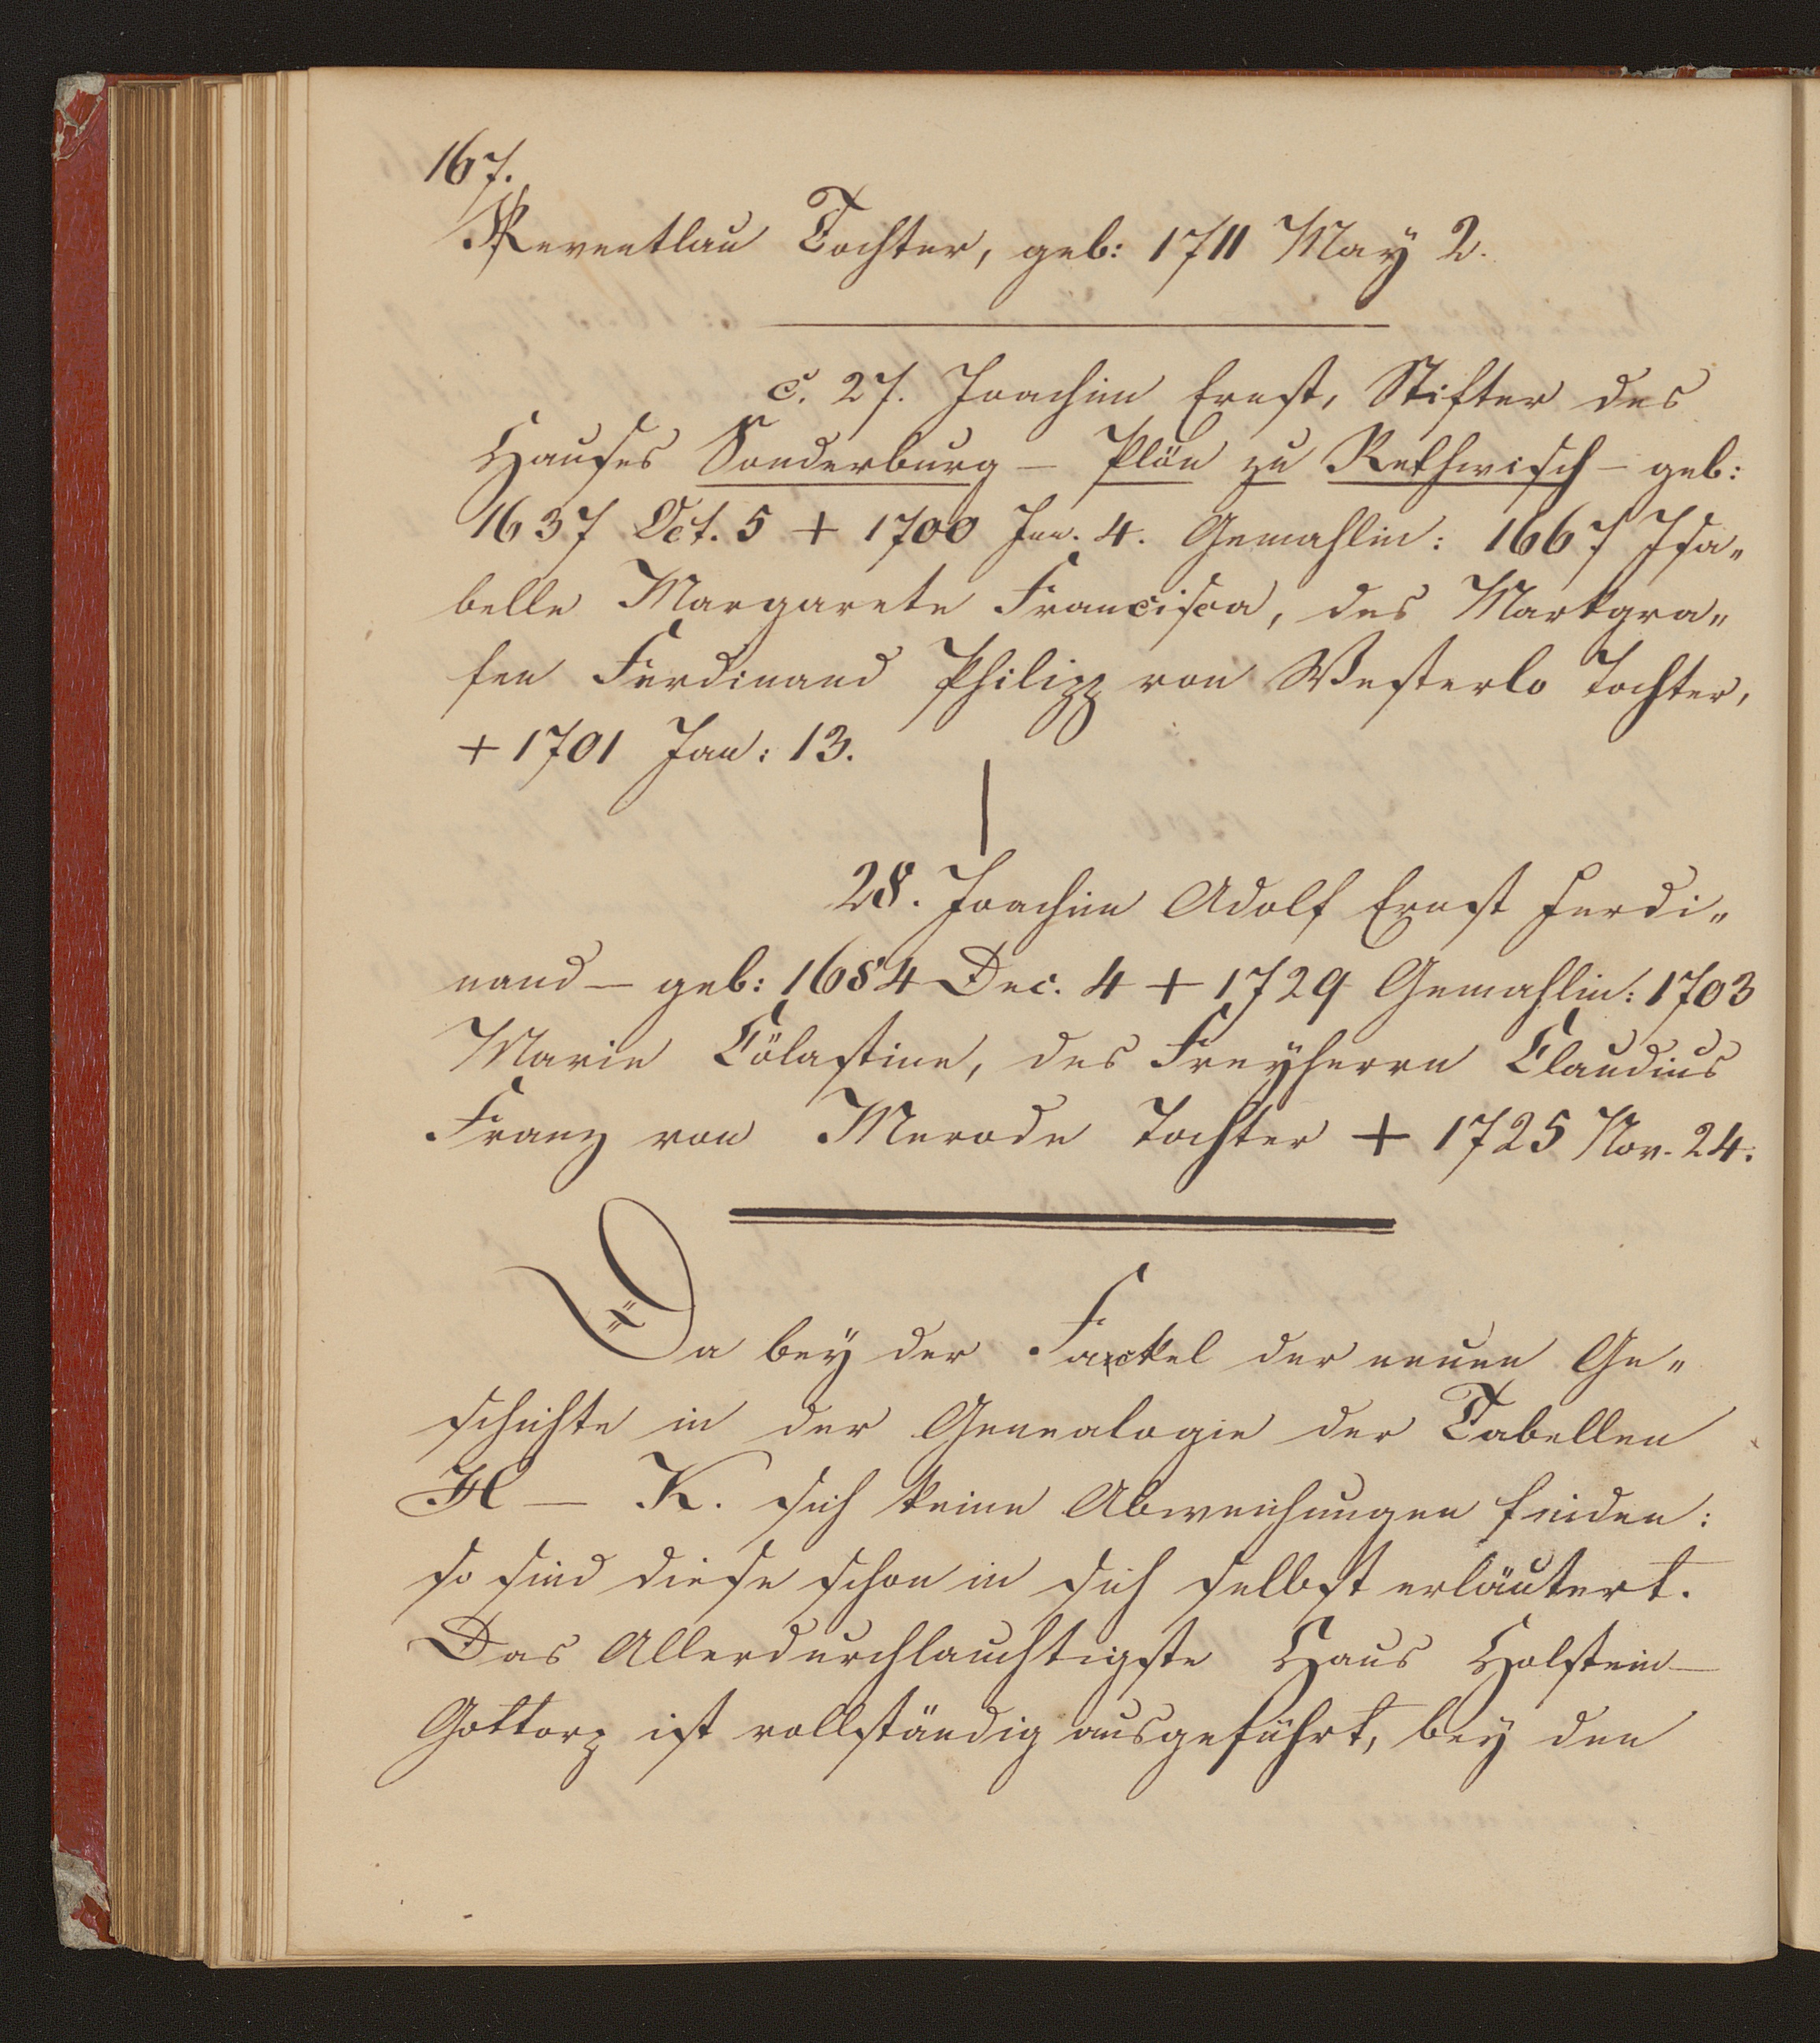 167.
Reventlau Tochter, geb: 1711 May 2.
c. 27. Joachim Ernst, Stifter des
Hauses Sonderburg – Plön zu Rethwisch – geb:
1637 Oct. 5 + 1700 Jun. 4. Gemahlin: 1667 Isa„
belle Margarete Francisca, des Markgra„
fen Ferdinand Philipp von Westerlo Tochter,
+ 1701 Jan: 13.
28. Joachim Adolf Ernst Ferdi„
nand – geb: 1684 Dec. 4 + 1729 Gemahlin: 1703
Marie Cölastine, des Freyherrn Claudius
Franz von Merode Tochter + 1725 Nov. 24.
Da bey der Fackel der neuen Ge„
schichte in der Genealogie der Tabellen
H – K. sich keine Abweichungen finden:
so sind diese schon in sich selbst erläutert.
Das Allerdurchlauchtigste Haus Holstein–
Gottorp ist vollständig ausgeführt, bey den